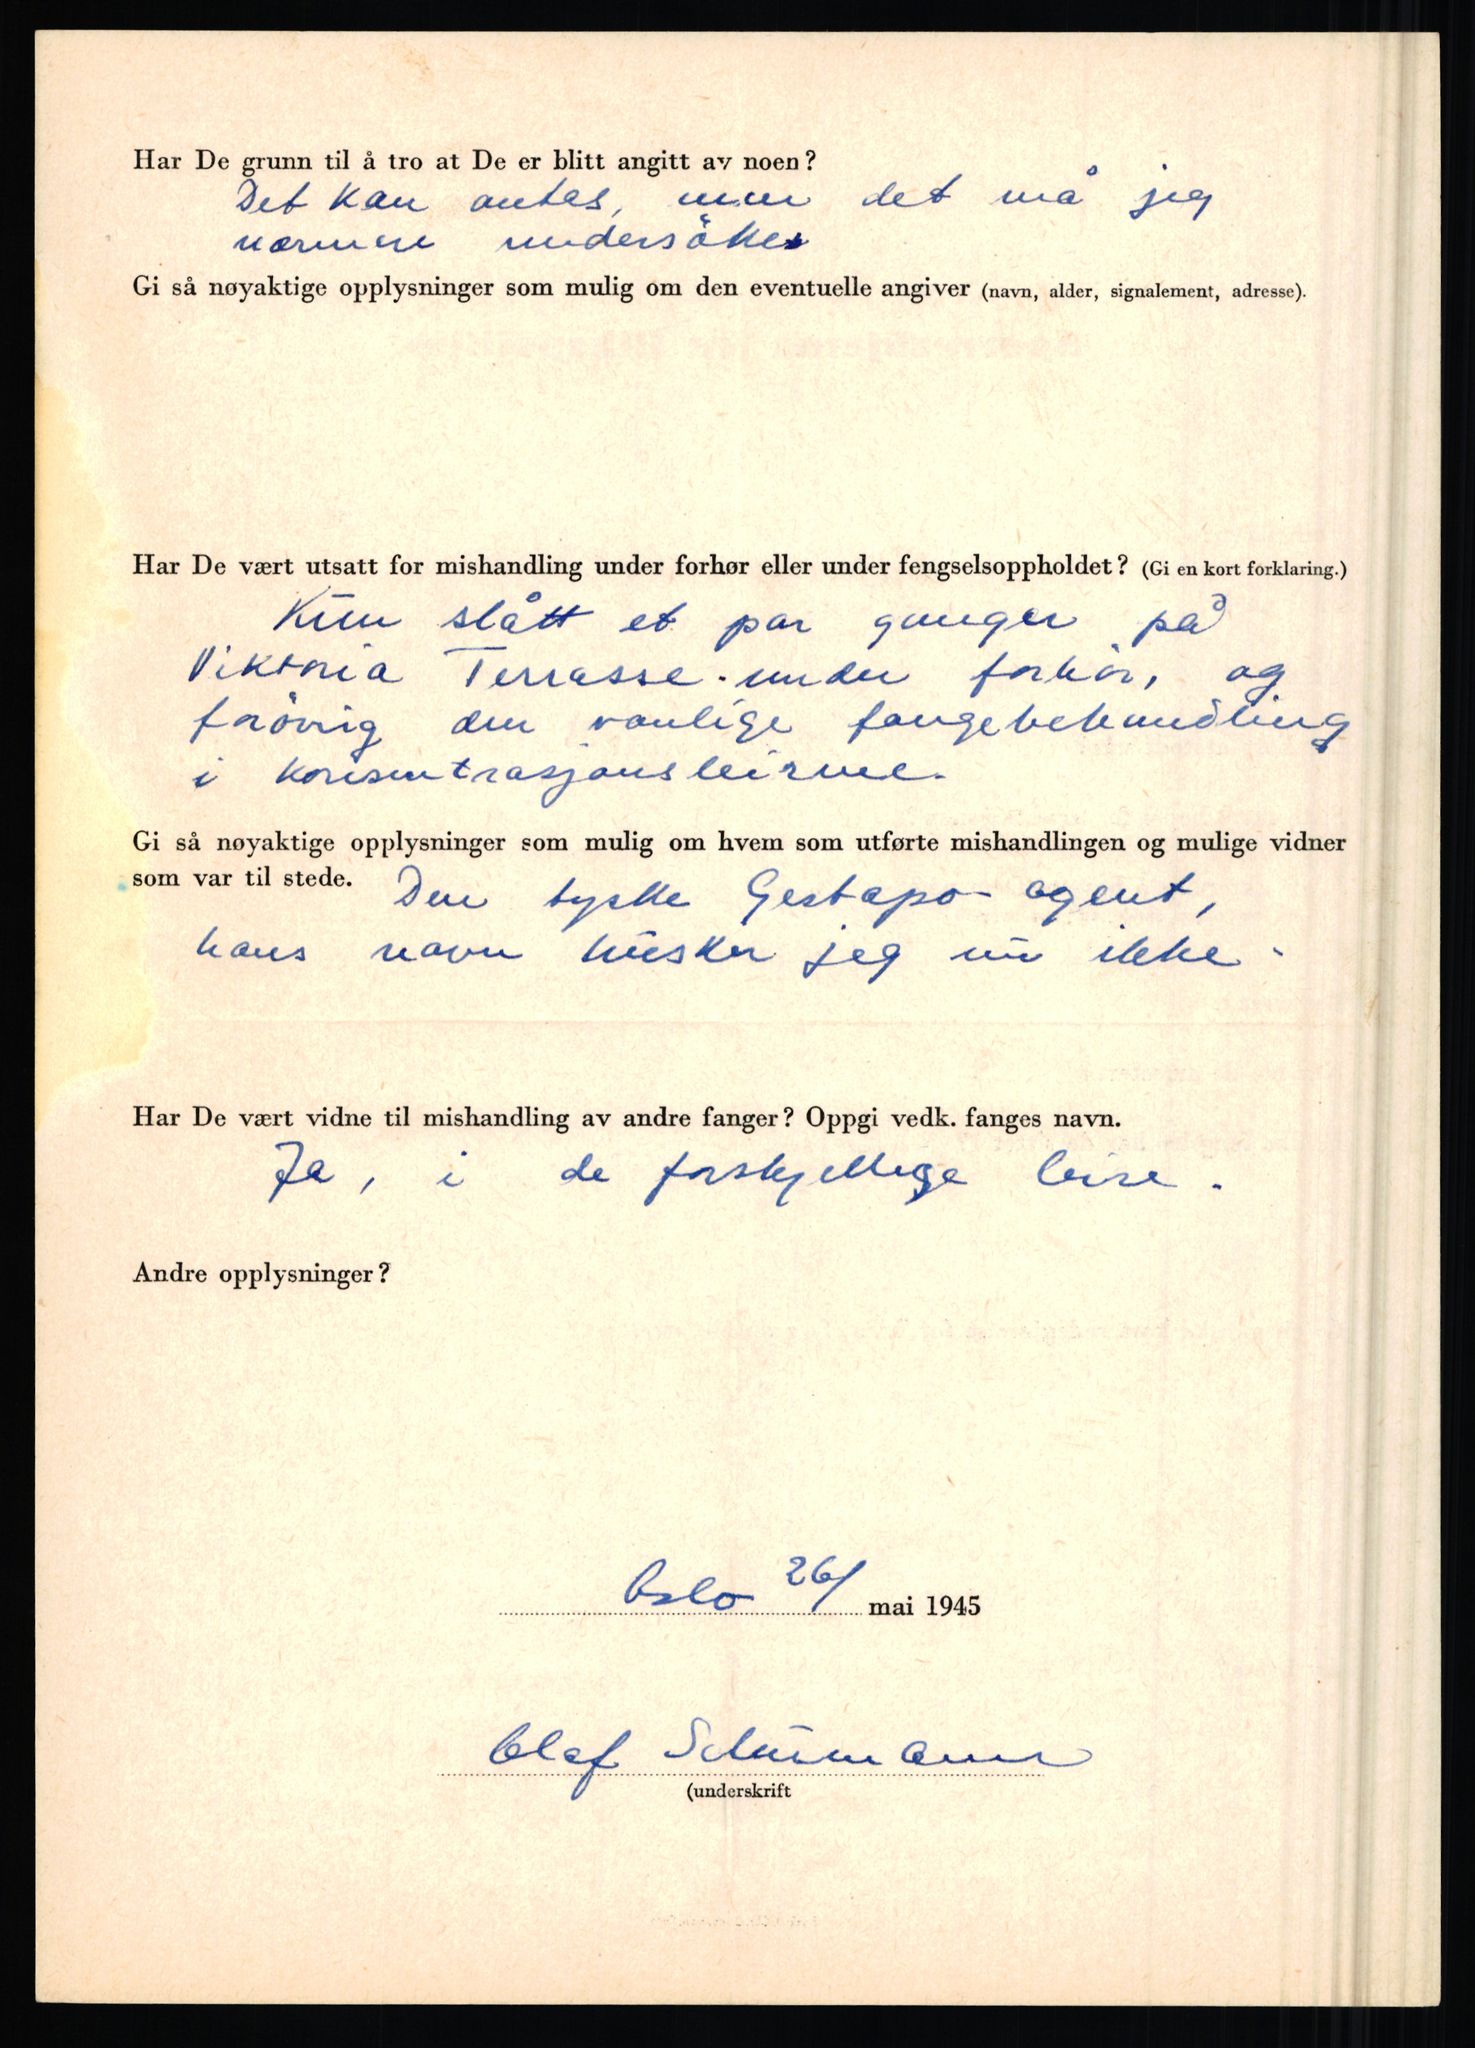 Har De grunn til å tro at De er blitt angitt av noen?
Det kan antas, men det må jeg
nærmere undersöke
Gi så nøyaktige opplysninger som mulig om den eventuelle angiver (navn, alder, signalement, adresse).
Har De vært utsatt for mishandling under forhør eller under fengselsoppholdet? (Gi en kort forklaring.)
Kun slått et par ganger på
Viktoria Terrasse under forhör, og
forövrig den vanlige fangebehandling
i konsentrasjonsleirene.
Gi så nøyaktige opplysninger som mulig om hvem som utførte mishandlingen og mulige vidner
som var til stede. Den tyske Gestapo-agent,
hans navn husker jeg nu ikke.
Har De vært vidne til mishandling av andre fanger? Oppgi vedk. fanges navn.
Ja, i de forskjellige leire.
Andre opplysninger?
Oslo 26/ mai 1945
Olaf Schumann
(underskrift